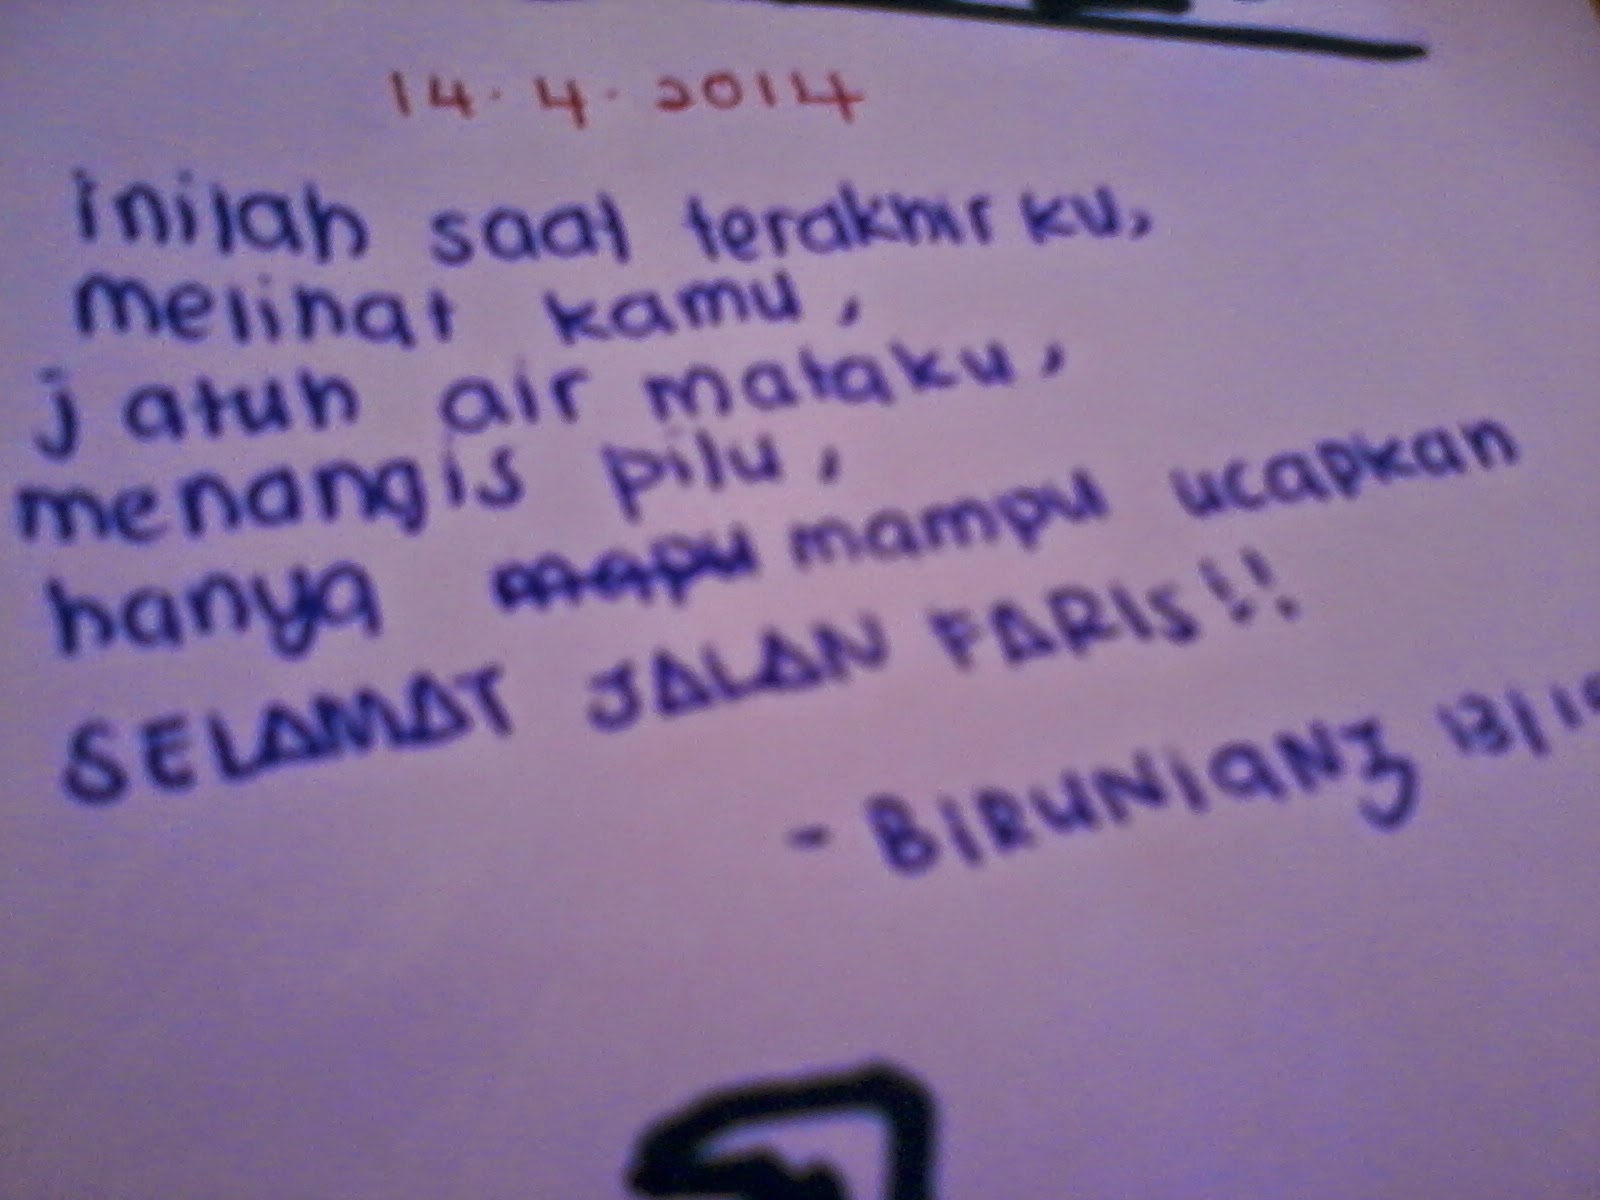 14.4.2014
inilah saat terakhir ku,
melihat kamu,
jatuh air mataku,
menangis pilu,
hanya mampu ucapkan
SELAMAT JALAN FARIS!!
- BIRUNIANZ